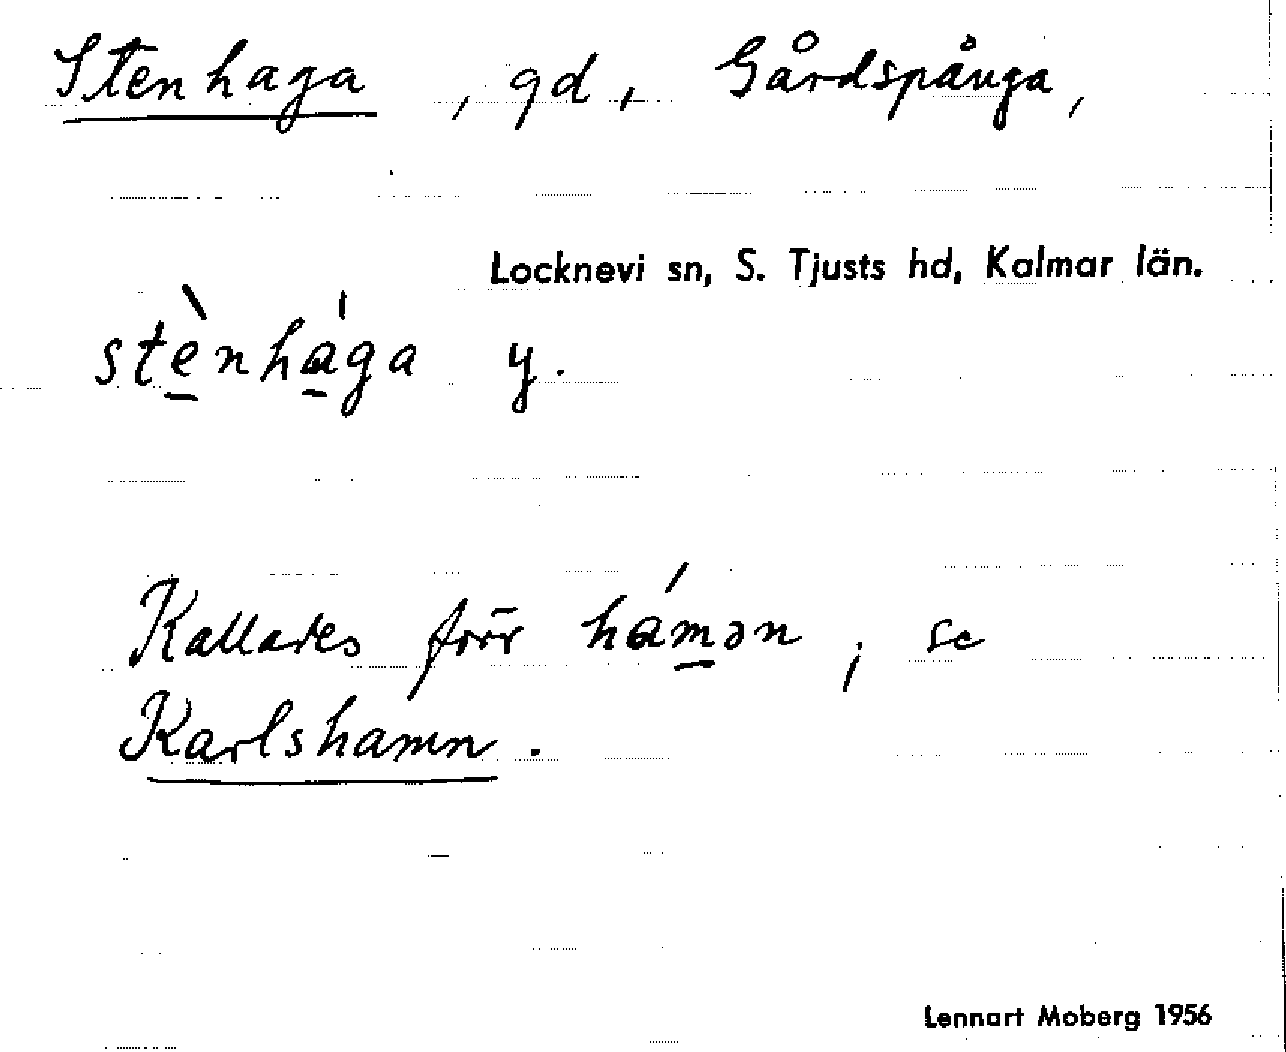 Stenhaga, gd, Gårdspånga,
Locknevi sn, S. Tjusts hd, Kalmar län.
stè̱nhá̱ga y.
Kallades förr hám̱ən, se
Karlshamn.
Lennart Moberg 1956